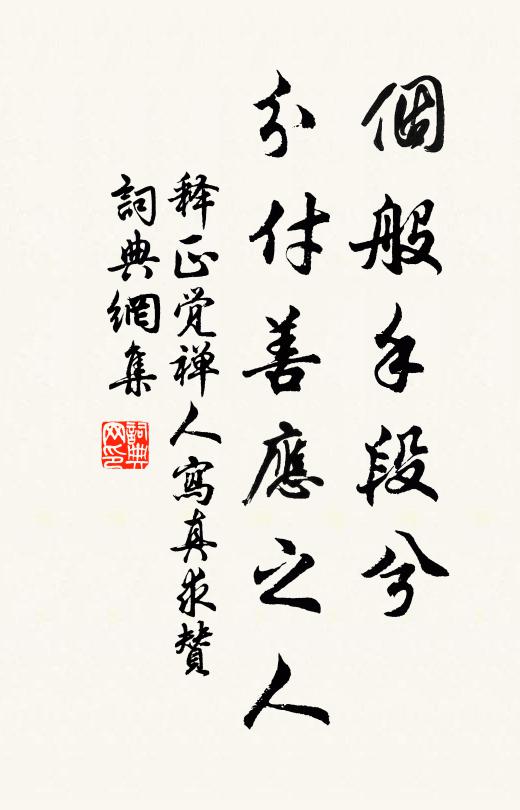 個般手段兮
分付善應之人
释正觉禅人寫真求贊
詞典網集
詞典網印